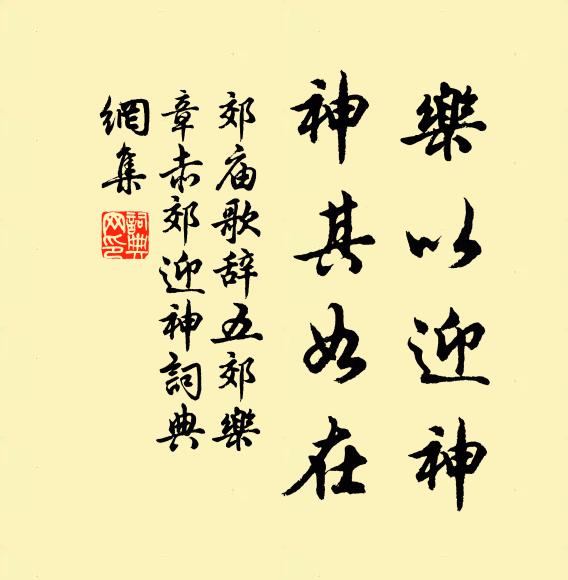 樂以迎神
神其如在
郊庙歌辞五郊樂
章赤郊迎神詞典
網集
詞典
网印